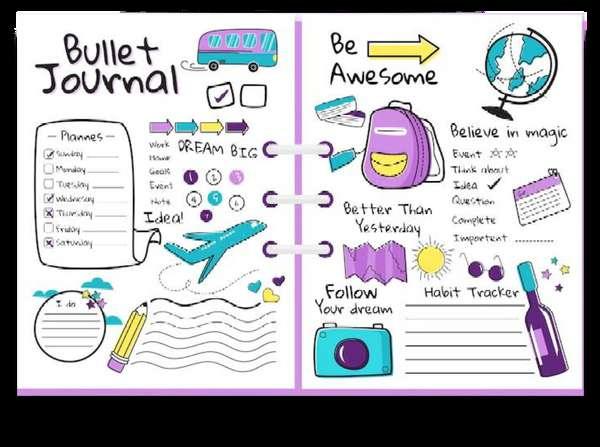 Bullet
Journal
Plannes
Sunday
Monday
Tuesday
Wednesday
Thursday
Friday
Saturday
Work
Home
Goals
Event
Note
DREAM BIG
1 2 3
4 5 6
7
Idea!
I do
Be
Awesome
Believe in magic
Event
Think about
Idea
Question
Complete
Important
Better Than
Yesterday
Follow
Your dream
Habit Tracker